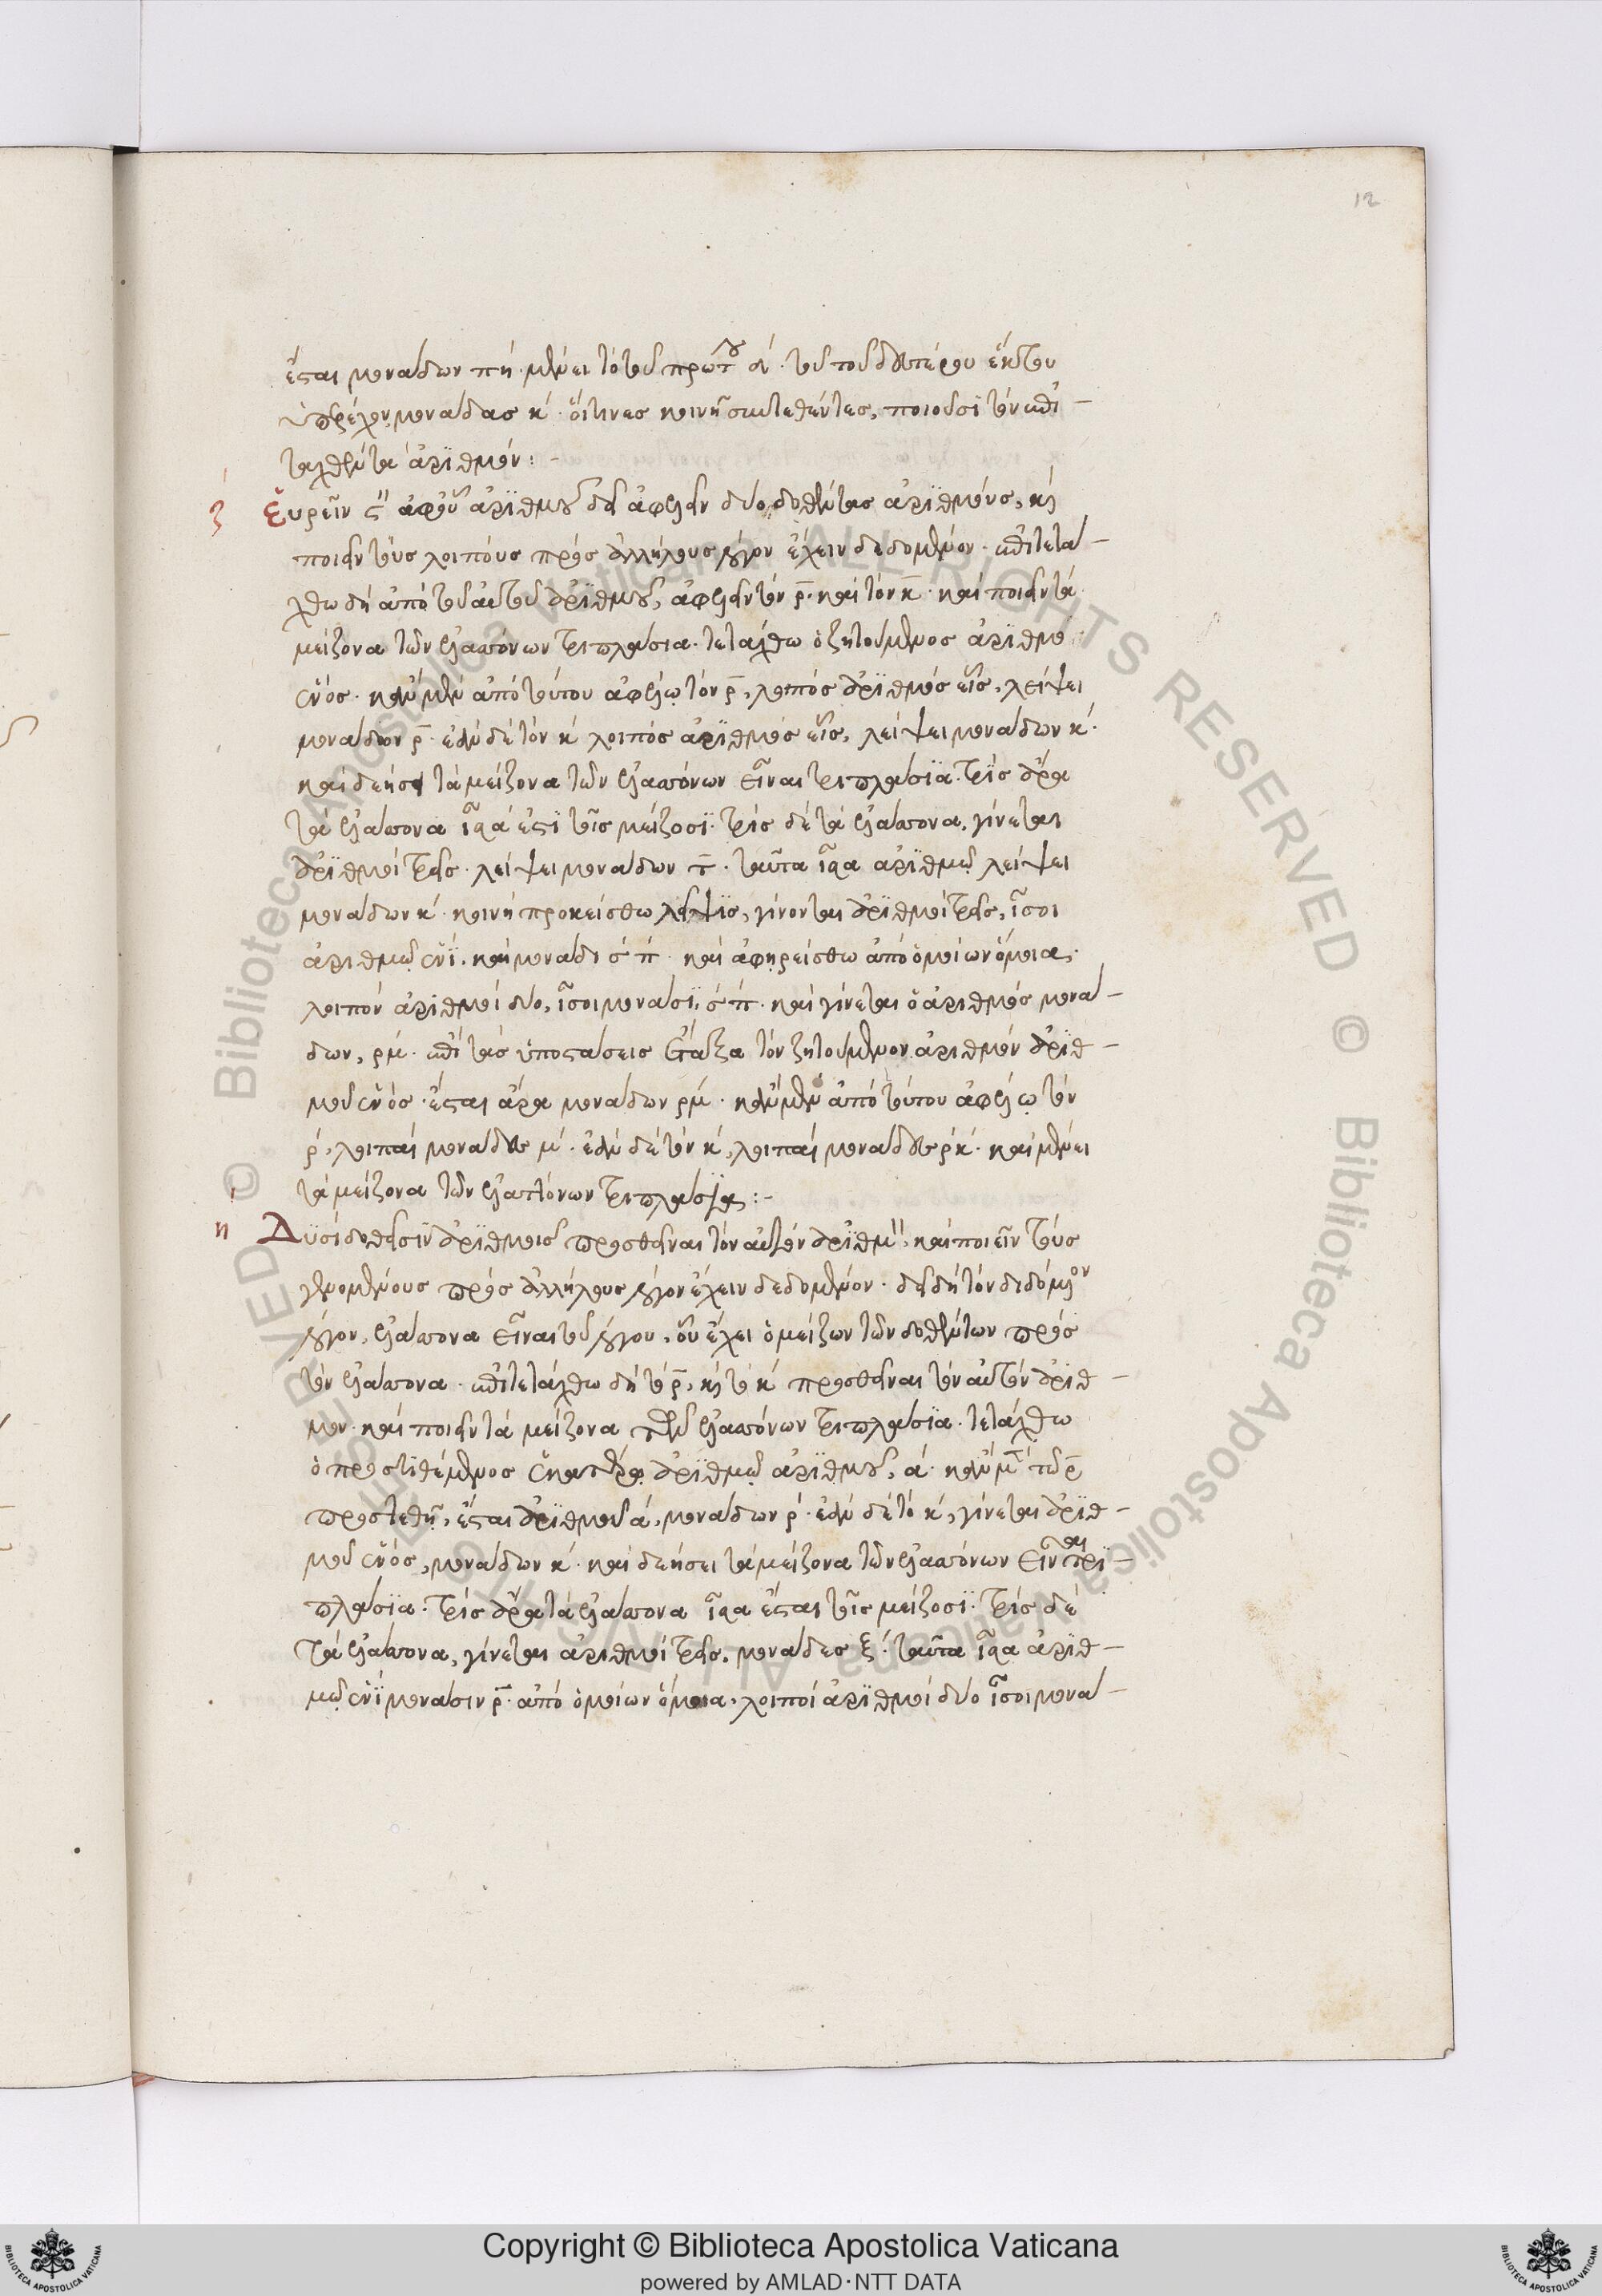 12
ἔσται μονάδων πη. μένει τὸ τοῦ πρώτου δ. τοῦ τοῦ δευτέρου ἕκτου
ὑπερέχον μονάδας κ. οἵτινες κοινῇ συντεθέντες, ποιοῦσι τὸν ἐπι-
ταχθέντα ἀριθμόν:-
ζ Εὑρεῖν ἀφ' οὗ ἀριθμοῦ δεῖ ἀφελεῖν δύο δοθέντας ἀριθμούς, καὶ
ποιεῖν τοὺς λοιποὺς πρὸς ἀλλήλους λόγον ἔχειν δεδομένον. ἐπιτετά-
χθω δὴ ἀπὸ τοῦ αὐτοῦ ἀριθμοῦ, ἀφελεῖν τὸν ρ̄. καὶ τὸν κ̄. καὶ ποιεῖν τὰ
μείζονα τῶν ἐλασσόνων τριπλάσια. τετάχθω ὁ ζητούμενος ἀριθμὸ
ἑνός. κἂν μὲν ἀπὸ τούτου ἀφέλω τὸν ρ̄, λοιπὸς ἀριθμὸς εἷς, λείψει
μονάδων ρ̄. ἐὰν δὲ τὸν κ λοιπὸς ἀριθμὸς εἷς, λείψει μονάδων κ.
καὶ δεήσει τὰ μείζονα τῶν ἐλασσόνων εἶναι τριπλάσια. τρὶς ἄρα
τὰ ἐλάσσονα ἴσα ἐστὶ τοῖς μείζοσι. τρὶς δὲ τὰ ἐλάσσονα, γίνεται
ἀριθμοὶ τρεῖς. λείψει μονάδων τ̄. ταῦτα ἴσα ἀριθμῷ λείψει
μονάδων κ. κοινὴ προκείσθω λεῖψις, γίνονται ἀριθμοὶ τρεῖς, ἴσοι
ἀριθμῷ ἑνί. καὶ μονάδι σπ. καὶ ἀφῃρείσθω ἀπὸ ὁμοίων ὅμοια.
λοιπὸν ἀριθμοὶ δύο, ἴσοι μονάσι, σπ. καὶ γίνεται ὁ ἀριθμὸς μονά-
δων, ρμ. ἐπὶ τὰς ὑποστάσεις ἔταξα τὸν ζητούμενον ἀριθμὸν ἀριθ-
μοῦ ἑνός. ἔσται ἄρα μονάδων ρμ. κἂν μὲν ἀπὸ τούτου ἀφέλω τὸν
ρ, λοιπαὶ μονάδες μ. ἐὰν δὲ τὸν κ, λοιπαὶ μονάδες ρκ. καὶ μένει
τὰ μείζονα τῶν ἐλαττόνων τριπλάσια:-
η Δυσὶ δοθεῖσιν ἀριθμοῖς προσθεῖναι τὸν αὐτὸν ἀριθμ", καὶ ποιεῖν τοὺς
γενομένους πρὸς ἀλλήλους λόγον ἔχειν δεδομένον. δεῖ δὴ τὸν διδόμενον
λόγον, ἐλάσσονα εἶναι τοῦ λόγου, οὗ ἔχει ὁ μείζων τῶν δοθέντων πρὸς
τὸν ἐλάσσονα. ἐπιτετάχθω δὴ τὸ ρ̄, καὶ τὸ κ προσθεῖναι τὸν αὐτὸν ἀριθ-
μον. καὶ ποιεῖν τὰ μείζονα τῶν ἐλασσόνων τριπλάσια. τετάχθω
ὁ προστιθέμενος ἑκατέρῳ ἀριθμῷ ἀριθμοῦ, α. κἂν μὲν τῷ ρ̄
προστεθῇ, ἔσται ἀριθμοῦ α, μονάδων ρ. ἐὰν δὲ τὸ κ, γίνεται ἀριθ-
μοῦ ἑνός, μονάδων κ. καὶ δεήσει τὰ μείζονα τῶν ἐλασσόνων εἶναι τρι-
πλάσια. τρὶς ἄρα τὰ ἐλάσσονα ἴσα ἔσται τοῖς μείζοσι. τρὶς δὲ
τὰ ἐλάσσονα, γίνεται ἀριθμοὶ τρεῖς, μονάδες ξ. ταῦτα ἴσα ἀριθ-
μῷ ἑνὶ μονάσιν ρ̄. ἀπὸ ὁμοίων ὅμοια. λοιποὶ ἀριθμοὶ δύο ἴσοι μονά-
Copyright © Biblioteca Apostolica Vaticana
powered by AMLAD·NTT DATA